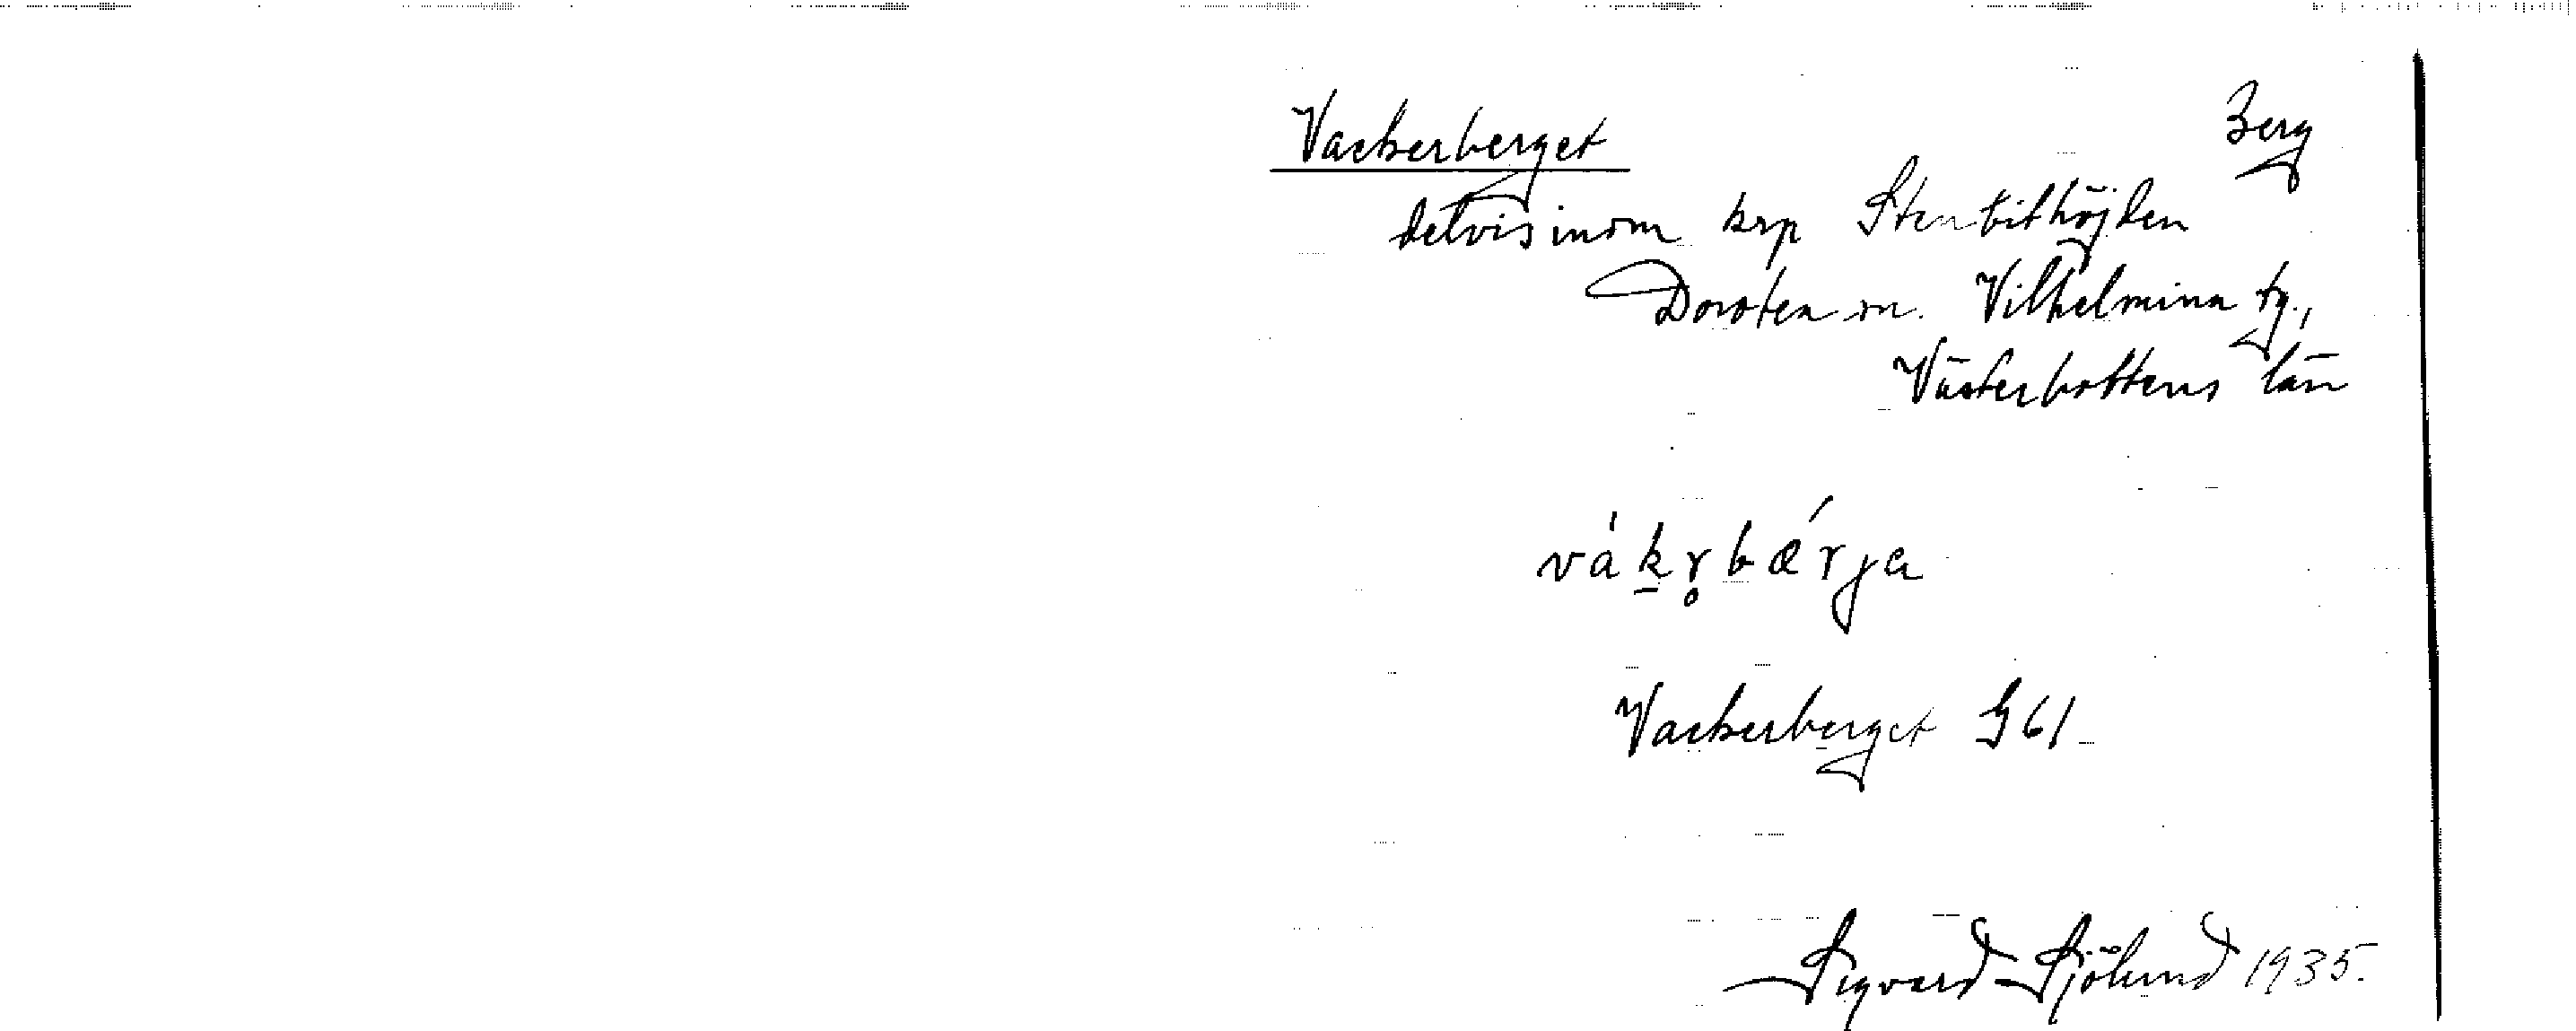 Vackerberget
Berg
delvis inom krp Stenbithöjden
Dorotea sn. Vilhelmina tg.,
Västerbottens län
vák̠r̥bǽrja
Vackerberget G61
Sigvard Sjölund 1935.